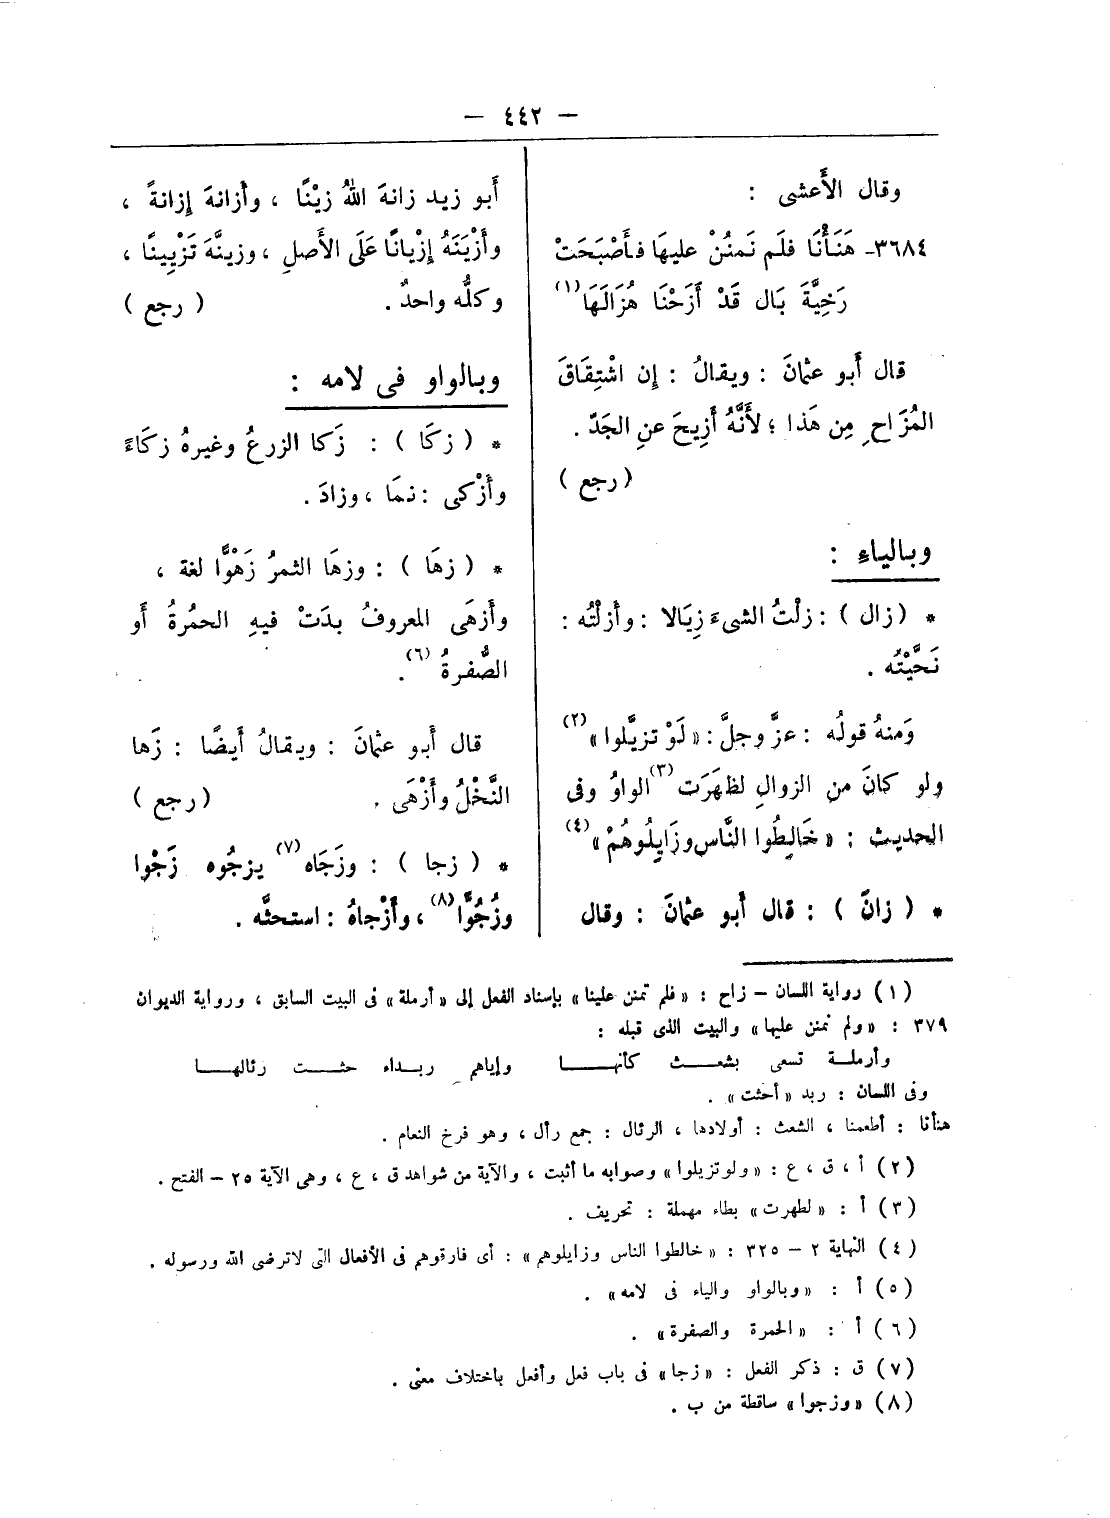 — ٤٤٢ —
وقال الأَعشى :
٣٦٨٤- هَنَأْنَا فلَم نَمنُنْ عليهَا فأَصْبَحَتْ
رَخِيَّةَ بَال قَدْ أَزَحْنَا هُزَالَهَا (١)
قال أَبو عثمانَ : ويقالُ : إِن اشْتِقَاقَ
المُزَاحِ مِن هَذا ؛ لأَنَّهُ أُزِيحَ عنِ الجَدّ .
( رجع )
وبالياءِ :
* ( زال ) : زلْتُ الشىءَ زِيَالا : وأَزلْتُه :
نَحَّيْتُه .
وَمنهُ قولُه : عزَّ وجلَّ : « لَوْ تزيَّلوا » (٢)
ولو كانَ من الزوالِ لظهَرَت (٣) الواوُ وفى
الحديث : « خَالِطُوا النَّاس وزَايِلُوهُمْ » (٤)
* ( زانَ ) : قال أَبو عثمانَ : وقال
أَبو زيد زانهَ اللهُ زيْنًا ، وأَزانهَ إِزانةً ،
وأَزْيَنَهُ إِزْيانًا عَلَى الأَصلِ ، وزينَّهَ تَزْيِينًا ،
وكلُّه واحدٌ . ( رجع )
وبالواو فى لامه :
* ( زكَا ) : زَكا الزرعُ وغيرهُ زكَاءً
وأَزْكى : نمَا ، وزادَ .
* ( زهَا ) : وزهَا الثمرُ زَهْوًا لغة ،
وأَزهَى المعروفُ بدَتْ فيهِ الحمُرةُ أَو
الصُّفرةُ (٦) .
قال أَبو عثمانَ : ويقالُ أَيضًا : زَها
النَّخْلُ وأَزْهَى . ( رجع )
* ( زجا ) : وزَجَاه (٧) يزجُوه زَجْوا
وزُجُوًّا (٨) ، وأَزْجاهُ : استحثَّه .
(١) رواية اللسان – زاح : « فلم تمنن علينا » بإسناد الفعل إلى « أرملة » فى البيت السابق ، ورواية الديوان
٣٧٩ : « ولم نمنن عليها » والبيت الذى قبله :
وأرملة تسعى بشعث كأنها وإياهم ربداء حثت رئالها
وفى اللسان : ربد « أحثت » .
هنأنا : أطعمنا ، الشعث : أولادها ، الرئال : جمع رأل ، وهو فرخ النعام .
(٢) أ ، ق ، ع : « ولو تزيلوا » وصوابه ما أثبت ، والآية من شواهد ق ، ع ، وهى الآية ٢٥ – الفتح .
(٣) أ : « لطهرت » بطاء مهملة : تحريف .
(٤) النهاية ٢ – ٣٢٥ : « خالطوا الناس وزايلوهم » : أى فارقوهم فى الأفعال التى لاترضى الله ورسوله .
(٥) أ : « وبالواو والياء فى لامه » .
(٦) أ : « الحمرة والصفرة » .
(٧) ق : ذكر الفعل : « زجا » فى باب فعل وأفعل باختلاف معنى .
(٨) « وزجوا » ساقطة من ب .